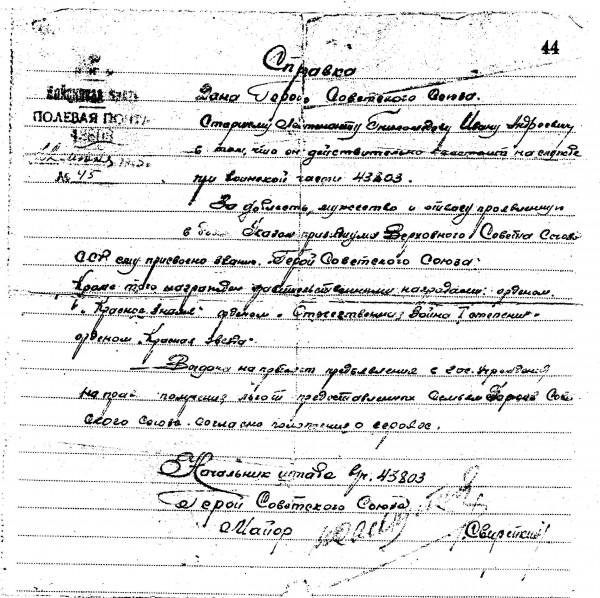 44
Справка
Войсковая часть
ПОЛЕВАЯ ПОЧТА
№ 45
Дана Герою Советского Союза.
Старшему Лейтенанту Ивану Андреевичу
в том, что он действительно состоит на службе
при воинской части 43803.
За доблесть, мужество и отвагу проявленную
в Указом президиума Верховного Совета Союза
ССР ему присвоено звание „Герой Советского Союза"
Кроме того награжден правительственными наградами: орденом
„Красное Знамя" орденом „Отечественная Война I степени"
орденом „Красная Звезда"
Выдана на предмет предъявления в гос. учреждения
на право получения льгот предоставленных семьям Героев Совет
ского Союза согласно положения о героях.
Начальник штаба в/ч. 43803
Герой Советского Союза
Майор Свирский